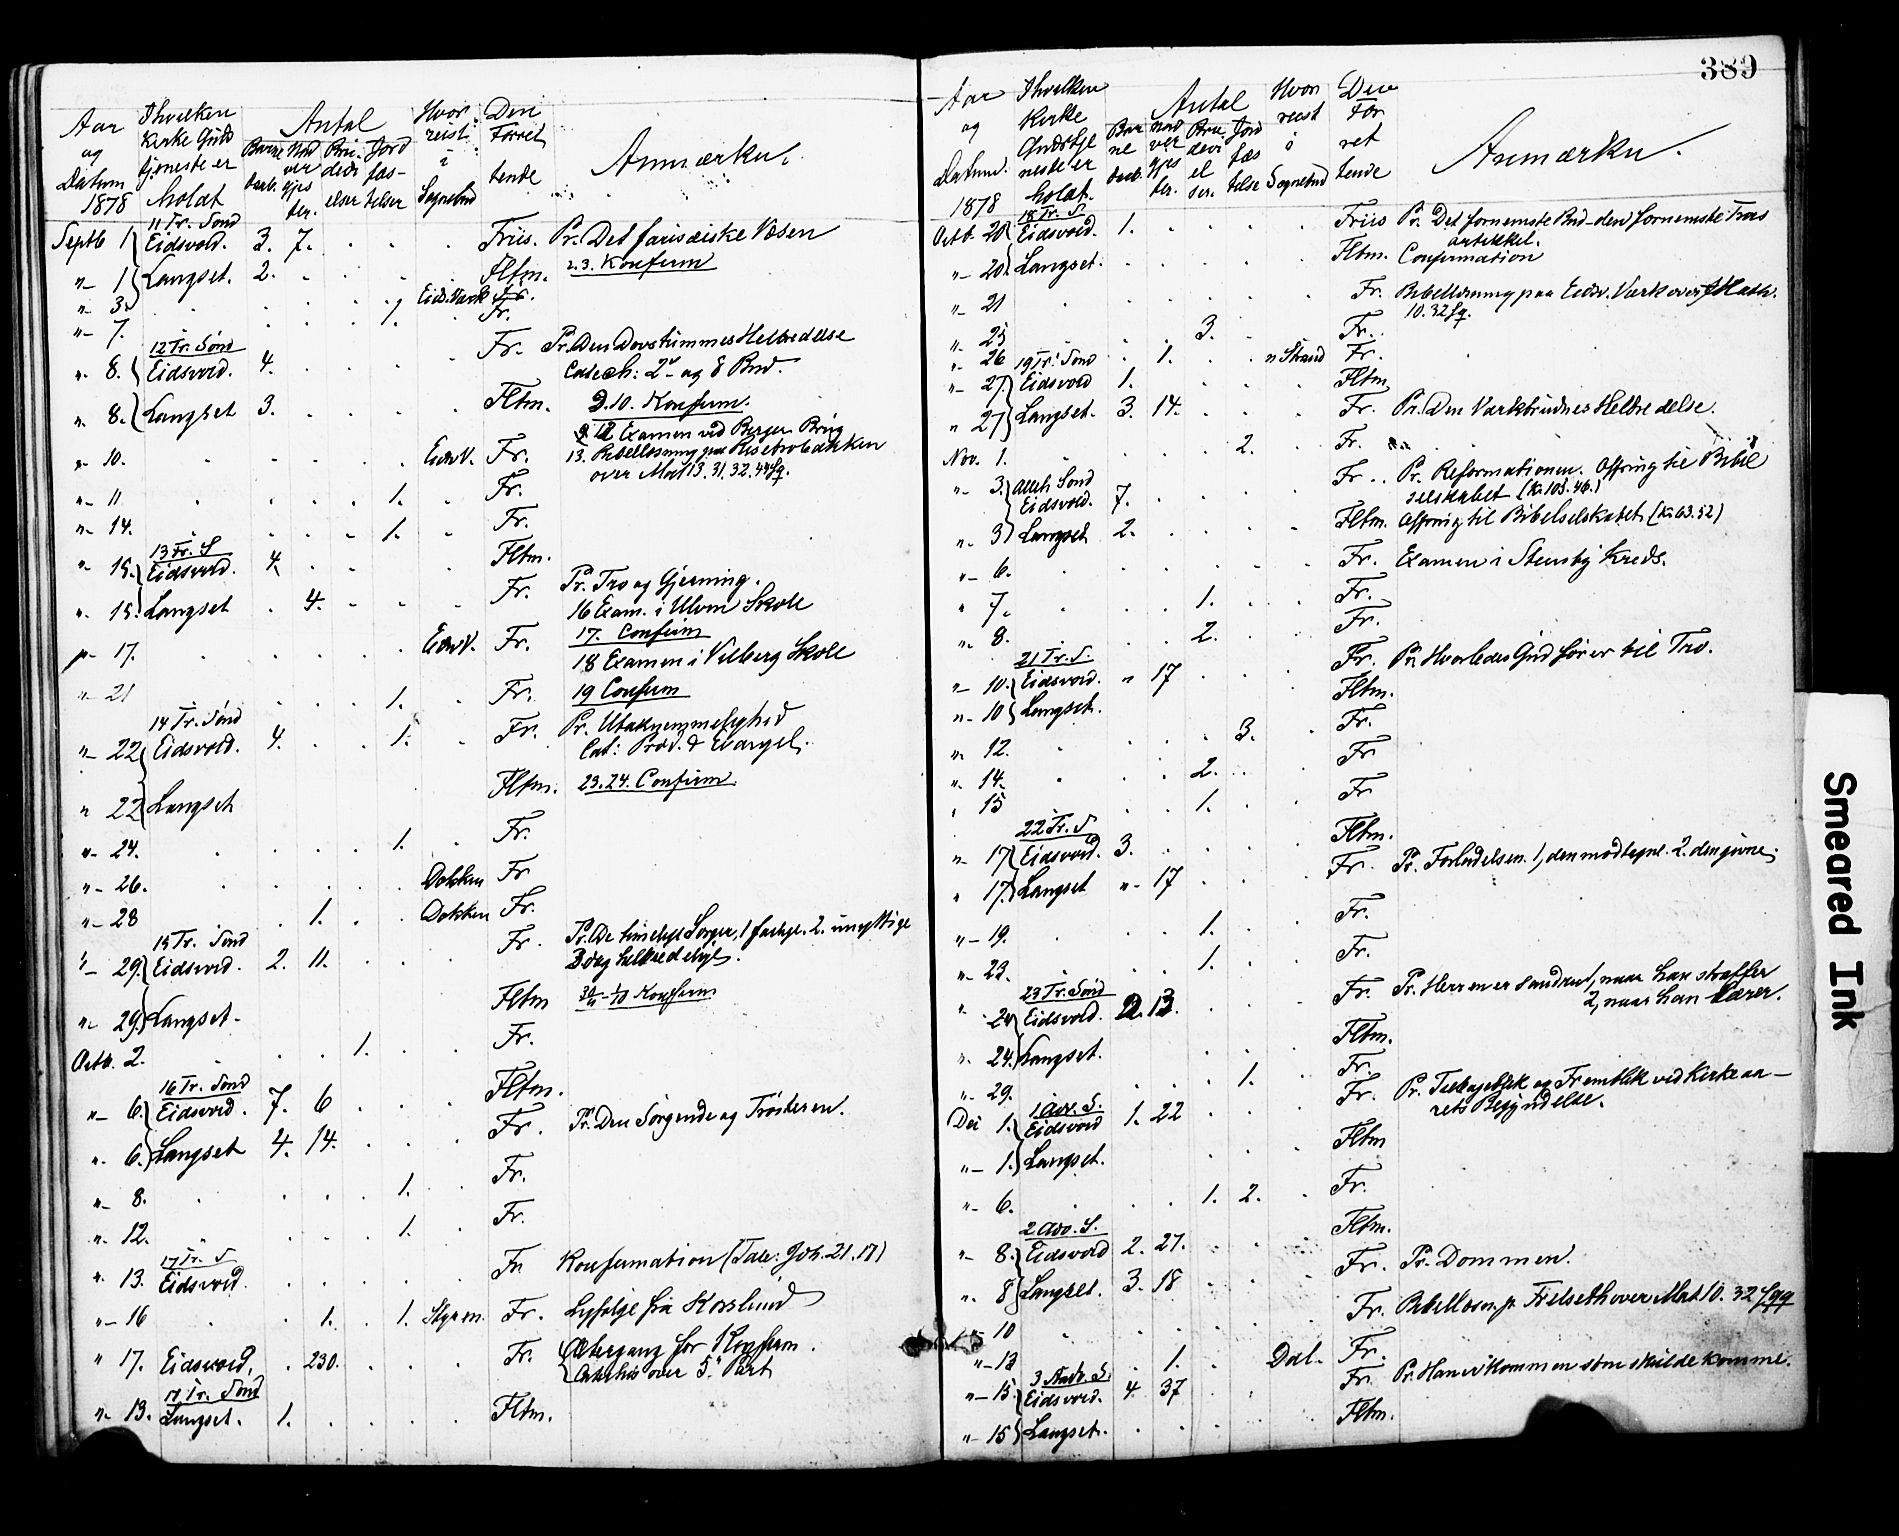 389
Aar og Datum 1878 | Ihvilken Kirke Guds tjeneste er holdt | Antal | Hvor reist i Sognebud | Den Forret tende | Anmærkn.
Septb 1 11 Tr. Sønd Eidsvold. 3. 7. Friis. Pr. Det farisæiske Væsen
"- 1 Langset. 2. Fltm. 2.3. Konfirm
"- 3. Eids.Værk Fr.
"- 7. 1. Fr.
12 Tr. Sønd
". 8. Eidsvold. 4. Fr. Pr. Den Døvstummes Helbredelse
Catech: 2 og 8 Bud.
". 8. Langset 3. Fltm. 9.10. Konfirm.
12 Examen ved Berger Brug
"- 10. Eidsv. Fr. 13. Bibellæsning paa
over Mat 13. 31. 32. 44 fg.
"- 11 1. Fr.
"- 14. 1. Fr.
13 Tr. S
"- 15. Eidsvold. 4. Fltm.
". 15. Langset 4. Fr. Pr. Tro og Gjerning.
16 Exam. i Ulven Skole
"- 17. Eidsv. Fr. 17. Confirm
18 Examen i Vilberg Skole
"- 21 1. Fr. 19 Confirm
14 Tr. Sønd
"- 22 Eidsvold. 4. 1. Fr. Pr. Utaknemmelighed
Cat: Præd. & Evangel.
" 22 Langset Fltm. 23.24. Confirm
"- 24. 1. Fr.
"- 26. Dokken Fr
"- 28 1. Dokken Fr.
15 Tr. Sønd
"- 29. Eidsvold. 2. 11. Fr. Pr. De timelige Sorger, 1 farlige. 2. unyttige
3 dog
"- 29. Langset Fltm Konfirm
Octb. 2. 1. Fr.
16 Tr. Sønd
"- 6. Eidsvold. 7. 6 Fltm.
". 6. Langset 4. 14. Fr. Pr. Den Sørgende og Trøsteren.
"- 8. 1. Fr.
". 12. 1. Fr.
17 Tr. S
". 13. Eidsvold. Fr. Konfirmation (Tale: Joh. 21.17)
"- 16 1. 1. Fr. Ligfølge fra Korslund
" 17. Eidsvold, 230. Fr. Altergang for Konfirm.
over 5. Part
". 13. Langset. 1. Fltm.
Aar og Datum. 1878 | Ihvilken Kirke Gudstje neste er holdt. | Antal | Hvor reist i Sognebud | Den For ret tende | Anmærkn.
18 Tr. S.
Octb. 20 Eidsvold. 1. Friis Pr. Det fornemste Bud - den fornemste Troes
artikkel.
"- 20. Langset. Fltm. Confirmation
"- 21 Fr. Bibellæsning paa Eidsv. Værk over Math.
10. 32 fg.
"- 25 3. Fr.
"- 26 1. Fr.
19 Tr. Sønd
"- 27. Eidsvold 1. Fltm
" 27 Langset. 3. 14. Fr. Pr. Den Værkbrudnes Helbredelse.
Nov. 1. 2. Fr.
"- 3. Alleh Sønd Eidsvold. 7. Fr. Pr. Reformationen. Offring til Bibel
selskabet (Kr. 105.46.)
". 3 Langset 2. Fltm. Offring til Bibelselskabet (Kr. 63.52)
"- 6. Fr. Examen i Stensby Kreds.
" 7. 1. Fr.
"- 8. 2. Fr.
21 Tr. S.
"- 10. Eidsvold. " 17 Fr. Pr. Hvorledes Gud fører til Tro.
"- 10 Langset. Fltm.
". 12. 3. Fr.
". 14. 2. Fr
" 15 1. Fr
22 Tr. S
"- 17 Eidsvold. 3. Fltm.
" 17. Langset " 17 Fr. Pr. Forladelsen. 1, den modtagne. 2. den givne.
"- 19. 1. Fr.
"- 23. 1. Fr.
23 Tr. Sønd
". 24 Eidsvold. 2. 13. Fr. Pr. Herren er sanddru 1, naar han straffer
2, naar han lærer.
". 24. Langset. Fltm.
"- 29. 1. Fr.
1 Adv. S.
Dec 1. Eidsvold 1. 22 Fr. Pr. Tilbageblik og Fremblik ved Kirkeaa-
rets Begyndelse.
"- 1. Langset. Fltm
"- 6. 1. 2. Fr.
2 Adv. S.
"- 8. Eidsvold 2. 27. Fltm.
". 8 Langset. 3. 18 Fr. Pr. Dommen.
"- 10 Fr. Bibellæsn. p. over Mat 10. 32 fgg
"- 13 1. Dal. Fr.
3 Adv. S.
"- 15 Eidsvold. 4 37 Fr. Pr. Han er kommen som skulde komme.
"- 15 Langset. Fltm.
Smeared Ink